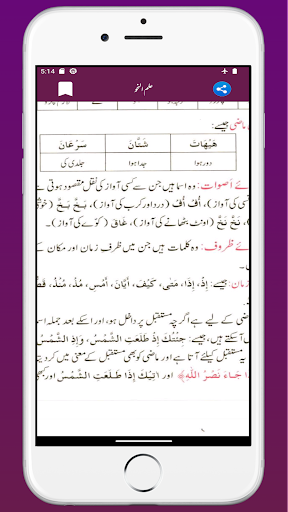 5:14
علم النحو
ماضی جیسے:
هَيْهَاتَ شَتَّانَ سَرْعَانَ
دور ہوا جدا ہوا جلدی کی
ئے اصوات: وہ اسما ہیں جن سے کسی آواز کی نقل مقصود ہوتی ہے
کی آواز)، اُفْ اُفْ (درد اور کرب کی آواز)، بَخْ بَخْ (خوشی
)، نَخْ نَخْ (اونٹ بٹھانے کی آواز)، غَاقْ (کوّے کی آواز)۔
ئے ظروف: وہ کلمات ہیں جن میں ظرفِ زمان اور مکان کے
زمان: جیسے: إِذْ، إِذَا، مَتٰى، كَيْفَ، أَيَّانَ، أَمْسِ، مُذْ، مُنْذُ، قَطُّ،
ضی کے لیے ہے اگرچہ مستقبل پر داخل ہو، اور اسکے بعد جملہ اسمیہ
آسکتے ہیں، جیسے: جِئْتُكَ إِذْ طَلَعَتِ الشَّمْسُ، وَإِذِ الشَّمْسُ
یہ مستقبل کیلئے آتا ہے اور ماضی کو بھی مستقبل کے معنی میں کر دیتا
ذَا جَاءَ نَصْرُ اللّٰهِ﴾ اور اٰتِيْكَ إِذَا طَلَعَتِ الشَّمْسُ اور کبھی